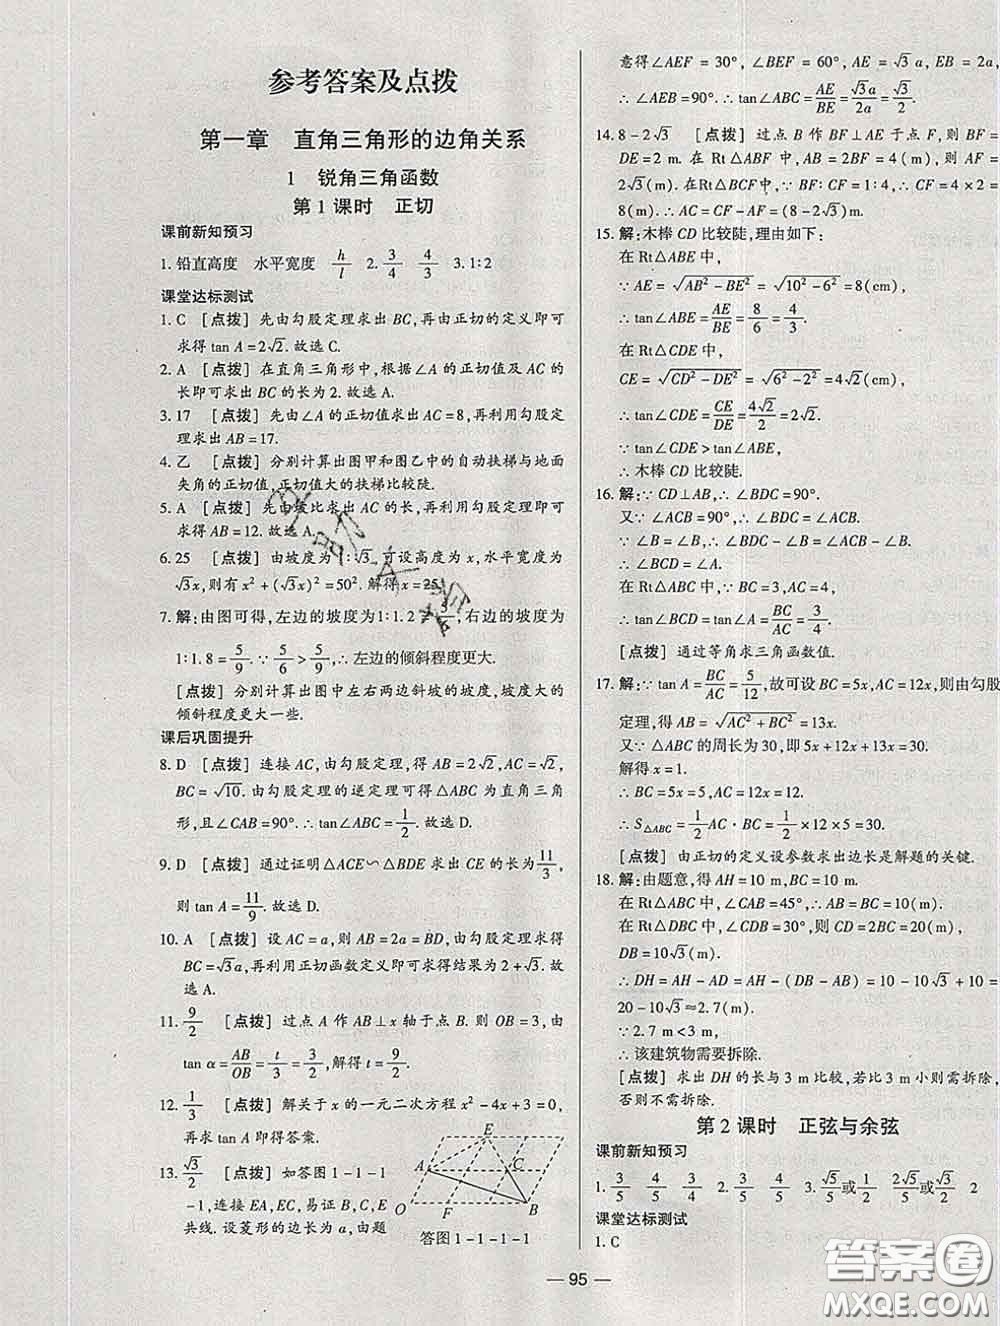 参考答案及点拨
第一章 直角三角形的边角关系
1 锐角三角函数
第1课时 正切
课前新知预习
1. 铅直高度 水平宽度 h/l 2. 3/4 4/3 3. 1∶2
课堂达标测试
1. C [点拨] 先由勾股定理求出 BC,再由正切的定义即可
求得 tan A=2√2. 故选 C.
2. A [点拨] 在直角三角形中,根据∠A 的正切值及 AC 的
长即可求出 BC 的长为 2. 故选 A.
3. 17 [点拨] 先由∠A 的正切值求出 AC=8,再利用勾股定
理求出 AB=17.
4. 乙 [点拨] 分别计算出图甲和图乙中的自动扶梯与地面
夹角的正切值,正切值大的扶梯比较陡.
5. A [点拨] 先由坡比求出 AC 的长,再利用勾股定理求
得 AB=12. 故选 A.
6. 25 [点拨] 由坡度为 1∶√3,可设高度为 x,水平宽度为
√3x,则有 x²+(√3x)²=50². 解得 x=25.
7. 解:由图可得,左边的坡度为 1∶1.2=5/6,右边的坡度为
1∶1.8=5/9. ∵5/6>5/9,∴左边的倾斜程度更大.
[点拨] 分别计算出图中左右两边斜坡的坡度,坡度大的
倾斜程度更大一些.
课后巩固提升
8. D [点拨] 连接 AC,由勾股定理,得 AB=2√2,AC=√2,
BC=√10. 由勾股定理的逆定理可得△ABC 为直角三角
形,且∠CAB=90°. ∴tan∠ABC=1/2. 故选 D.
9. D [点拨] 通过证明△ACE∽△BDE 求出 CE 的长为11/3,
则 tan A=11/9. 故选 D.
10. A [点拨] 设 AC=a,则 AB=2a=BD,由勾股定理求得
BC=√3a,再利用正切函数定义即可求得结果为 2+√3. 故
选 A.
11. 9/2 [点拨] 过点 A 作 AB⊥x 轴于点 B. 则 OB=3,由
tan α=AB/OB=t/3=3/2,解得 t=9/2.
12. 1/3 [点拨] 解关于 x 的一元二次方程 x²-4x+3=0,
再求 tan A 即得答案.
13. √3/2 [点拨] 如答图 1-1-1
-1,连接 EA,EC,易证 B,C,E
共线. 设菱形的边长为 a,由题
E
A
C
O
F
B
答图 1-1-1-1
意得∠AEF=30°,∠BEF=60°,AE=√3a,EB=2a,
∴∠AEB=90°. ∴tan∠ABC=AE/BE=√3a/2a=√3/2.
14. 8-2√3 [点拨] 过点 B 作 BF⊥AE 于点 F,则 BF=
DE=2 m. 在 Rt△ABF 中,∵BF∶AF=1∶√3,∴AF=
2√3(m). 在 Rt△BCF 中,∵BF∶CF=1∶4,∴CF=4BF=
8(m). ∴AC=CF-AF=(8-2√3)m.
15. 解:木棒 CD 比较陡,理由如下:
在 Rt△ABE 中,
∵AE=√(AB²-BE²)=√(10²-6²)=8(cm),
∴tan∠ABE=AE/BE=8/6=4/3.
在 Rt△CDE 中,
CE=√(CD²-DE²)=√(6²-2²)=4√2(cm),
∴tan∠CDE=CE/DE=4√2/2=2√2.
∵tan∠CDE>tan∠ABE,
∴木棒 CD 比较陡.
16. 解:∵CD⊥AB,∴∠BDC=90°.
又∵∠ACB=90°,∴∠BDC=∠ACB.
∵∠B=∠B,∴∠BDC-∠B=∠ACB-∠B.
∴∠BCD=∠A.
在 Rt△ABC 中,∵BC=3,AC=4,
∴tan∠BCD=tan A=BC/AC=3/4.
[点拨] 通过等角求三角函数值.
17. 解:∵tan A=BC/AC=5/12,故可设 BC=5x,AC=12x,则由勾股
定理,得 AB=√(AC²+BC²)=13x.
又∵△ABC 的周长为 30,即 5x+12x+13x=30.
解得 x=1.
∴BC=5x=5,AC=12x=12.
∴S△ABC=1/2 AC·BC=1/2×12×5=30.
[点拨] 由正切的定义设参数求出边长是解题的关键.
18. 解:由题意,得 AH=10 m,BC=10 m.
在 Rt△ABC 中,∠CAB=45°,∴AB=BC=10(m).
在 Rt△DBC 中,∠CDB=30°,则 CD=2BC=20(m),
DB=10√3(m).
∴DH=AH-AD=AH-(DB-AB)=10-10√3+10=
20-10√3≈2.7(m).
∵2.7 m<3 m,
∴该建筑物需要拆除.
[点拨] 求出 DH 的长与 3 m 比较,若比 3 m 小则需拆除,
否则不需拆除.
第2课时 正弦与余弦
课前新知预习
1. 3/5 4/5 3/4 2. 3/5 4/5 3. √5/5或1/2 2√5/5或√3/2 2
课堂达标测试
1. C
95
答案圈
MXQE.COM